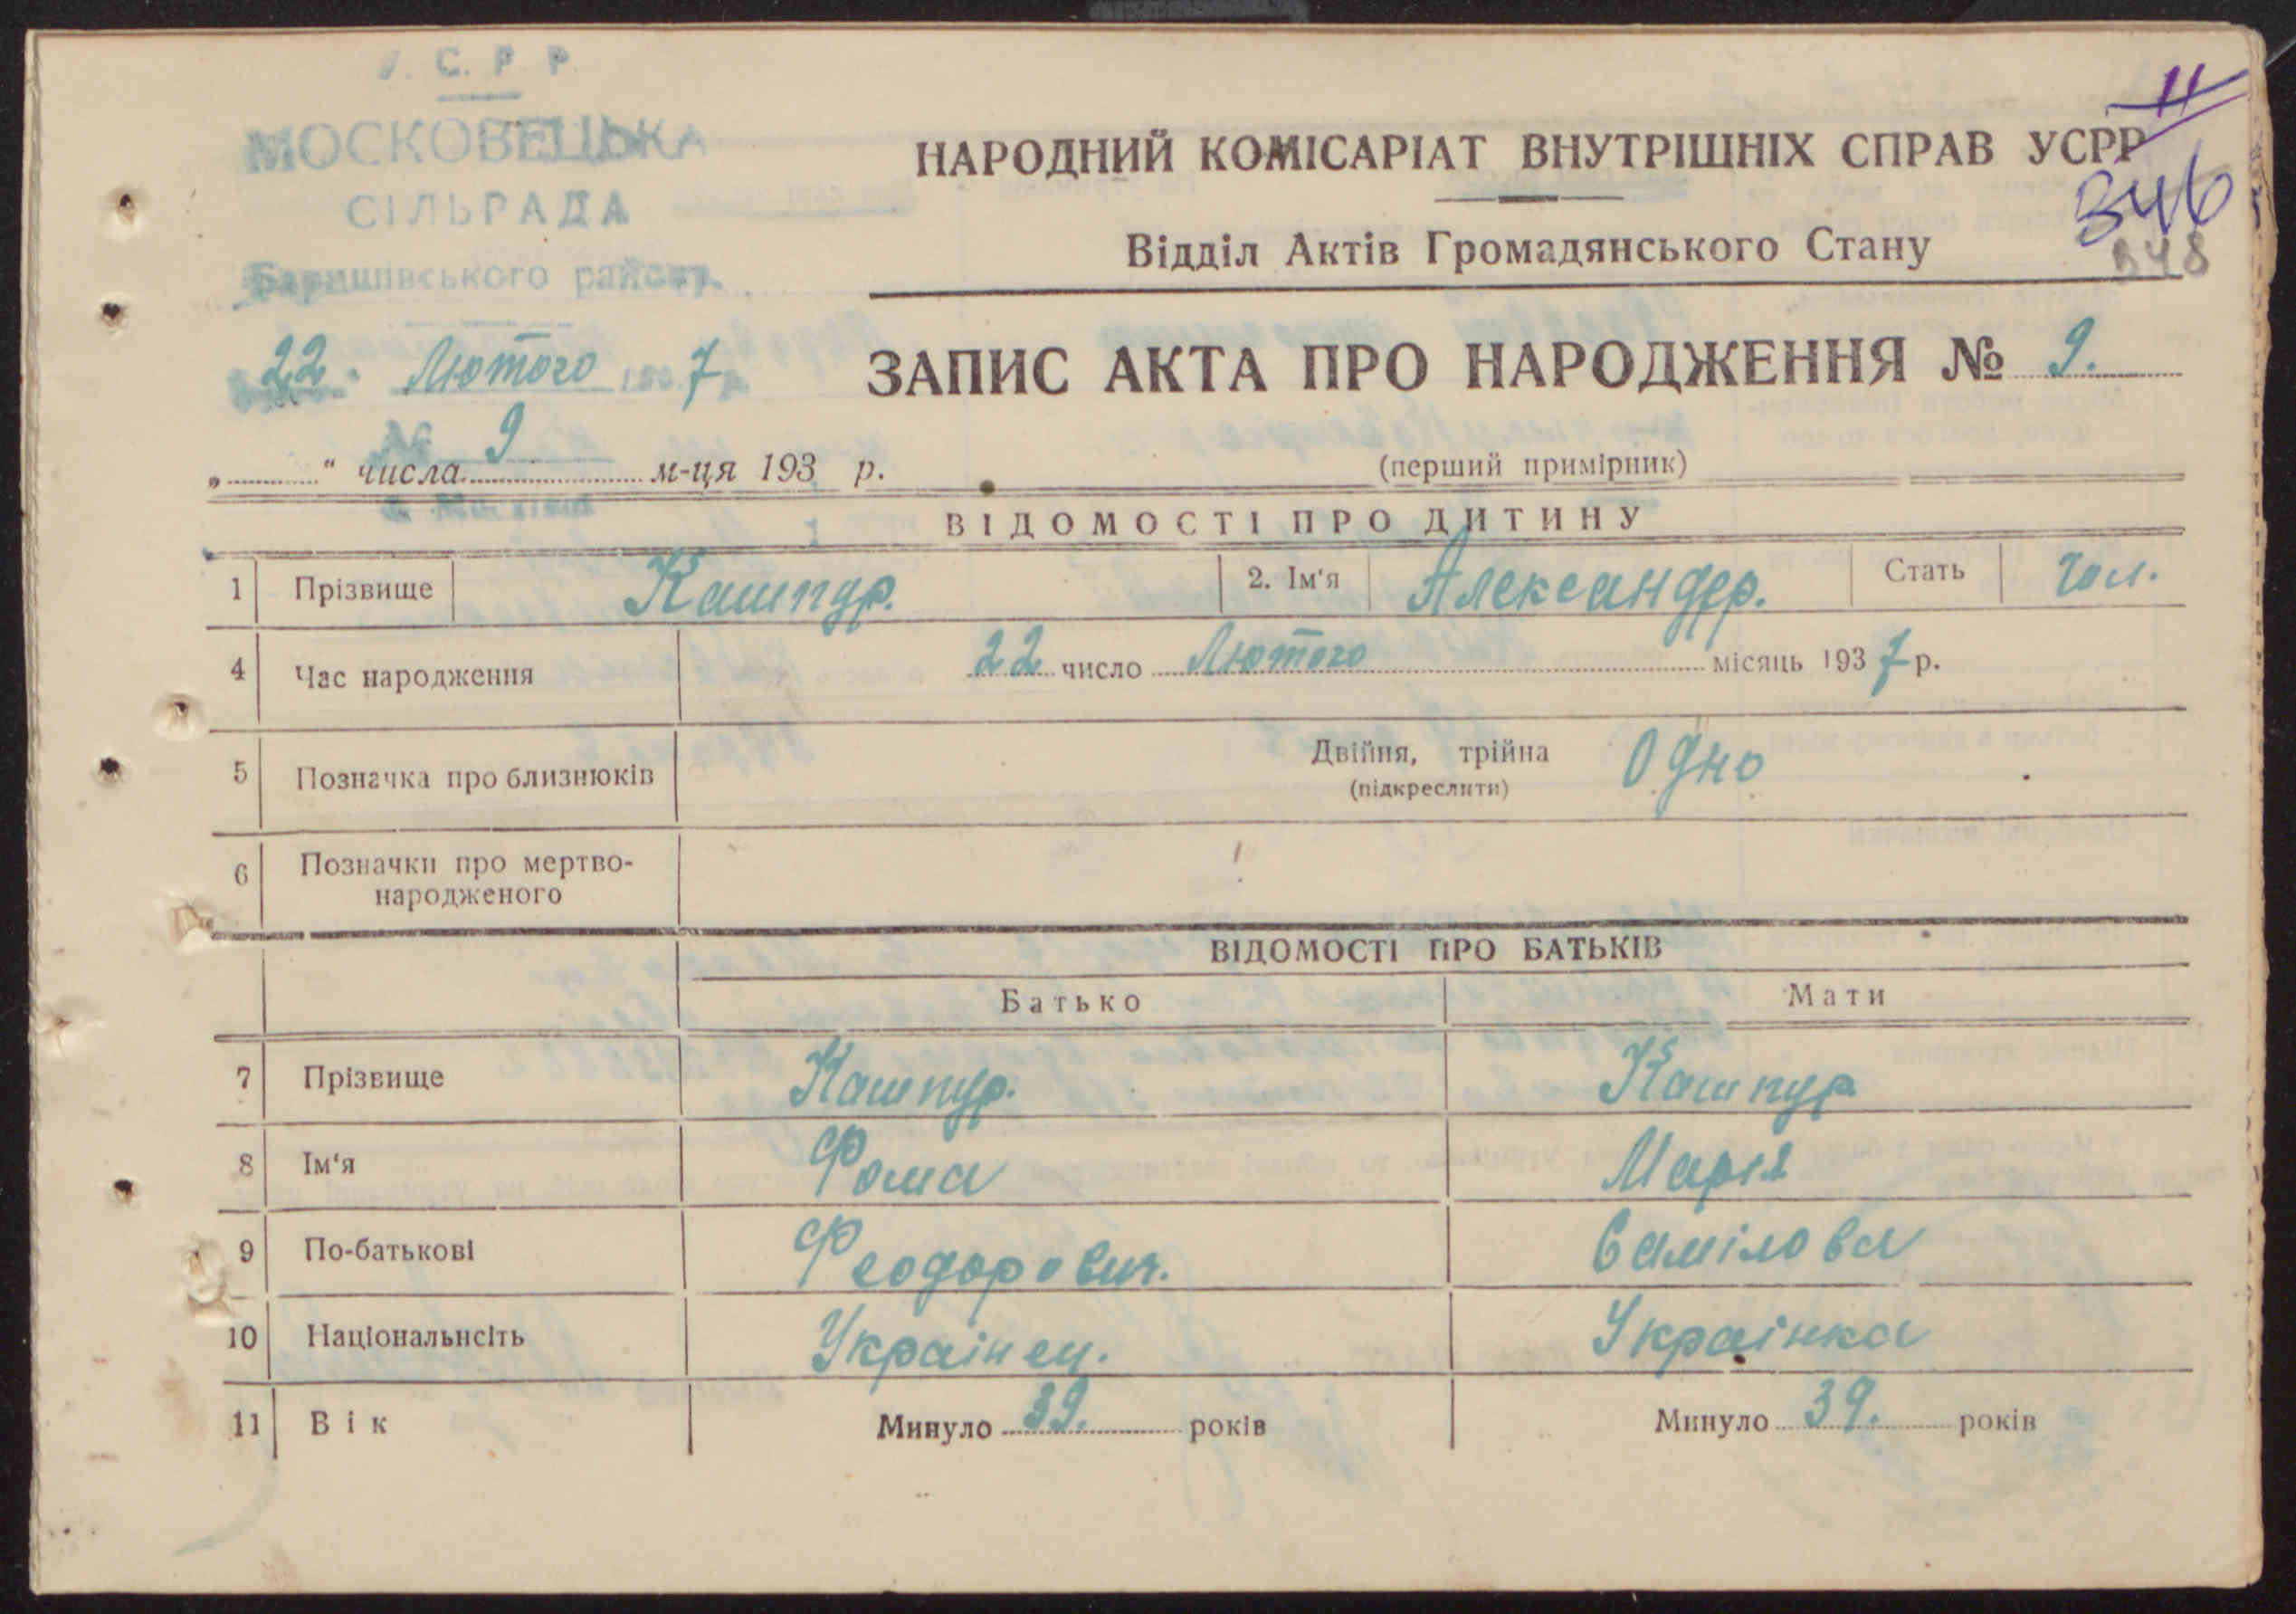 У. С. Р. Р.
МОСКОВЕЦЬКА
СІЛЬРАДА
Баришівського району.
22. Лютого 193 7 р.
№ 9
„ “ числа м-ця 193 р.
11
НАРОДНИЙ КОМІСАРІАТ ВНУТРІШНІХ СПРАВ УСРР
346
Відділ Актів Громадянського Стану
348
ЗАПИС АКТА ПРО НАРОДЖЕННЯ № 9.
(перший примірник)
ВІДОМОСТІ ПРО ДИТИНУ
1 Прізвище Кашпур. 2. Ім'я Александер. Стать чол.
4 Час народження 22 число Лютого місяць 1937 р.
5 Позначка про близнюків Двійня, трійна Одно
(підкреслити)
6 Позначки про мертво-
народженого
ВІДОМОСТІ ПРО БАТЬКІВ
Батько Мати
7 Прізвище Кашпур. Кашпур
8 Ім'я Фома Марія
9 По-батькові Феодорович. Самілова
10 Національнсіть Українец. Українка
11 Вік Минуло 39. років Минуло 39. років